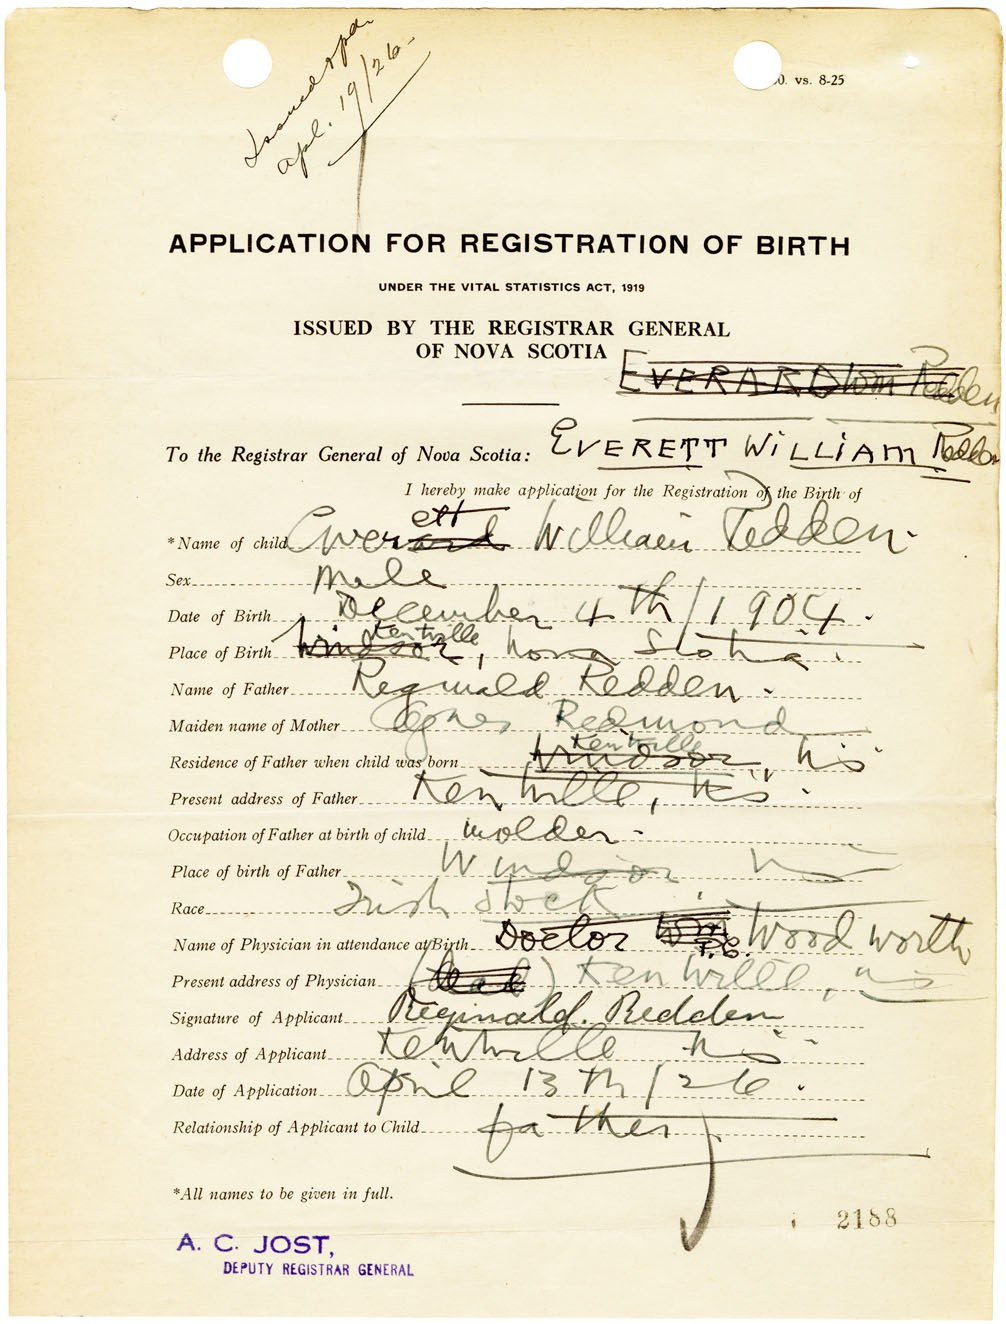 Issued
Apl. 19/26-
0. vs. 8-25
APPLICATION FOR REGISTRATION OF BIRTH
UNDER THE VITAL STATISTICS ACT, 1919
ISSUED BY THE REGISTRAR GENERAL
OF NOVA SCOTIA
EVERARD Wm Redden
To the Registrar General of Nova Scotia: EVERETT WILLIAM Redden
I hereby make application for the Registration of the Birth of
*Name of child Everard ett William Redden.
Sex Male
Date of Birth December 4th / 1904.
Place of Birth Windsor Kentville, Nova Scotia.
Name of Father Reginald Redden.
Maiden name of Mother Agnes Redmond
Residence of Father when child was born Windsor Kentville, N.S
Present address of Father Kentville, N.S.
Occupation of Father at birth of child molder.
Place of birth of Father Windsor N.S
Race Irish Stock
Name of Physician in attendance at Birth Doctor Wm P.C. Woodworth
Present address of Physician (dead) Kentville, N.S
Signature of Applicant Reginald. Redden
Address of Applicant Kentville N.S.
Date of Application April 13th / 26.
Relationship of Applicant to Child father.
*All names to be given in full.
2188
A. C. JOST,
DEPUTY REGISTRAR GENERAL